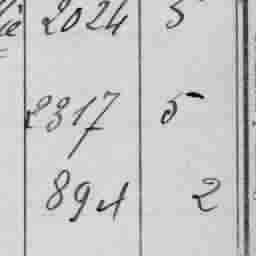 2024 5
2317 5
894 2